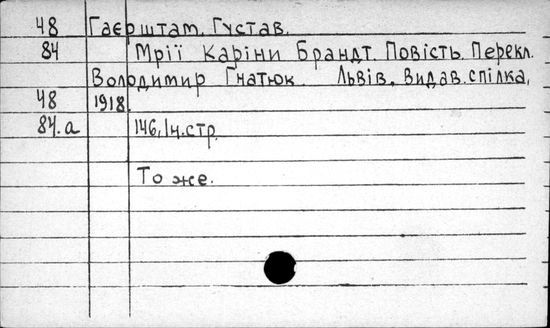 48 Гаєрштам, Густав.
84 Мрії Каріни Брандт. Повість. Перекл.
Володимир Гнатюк. Львів, Видав. спілка,
48 1918.
84.а 146, Ін. стр.
То же.